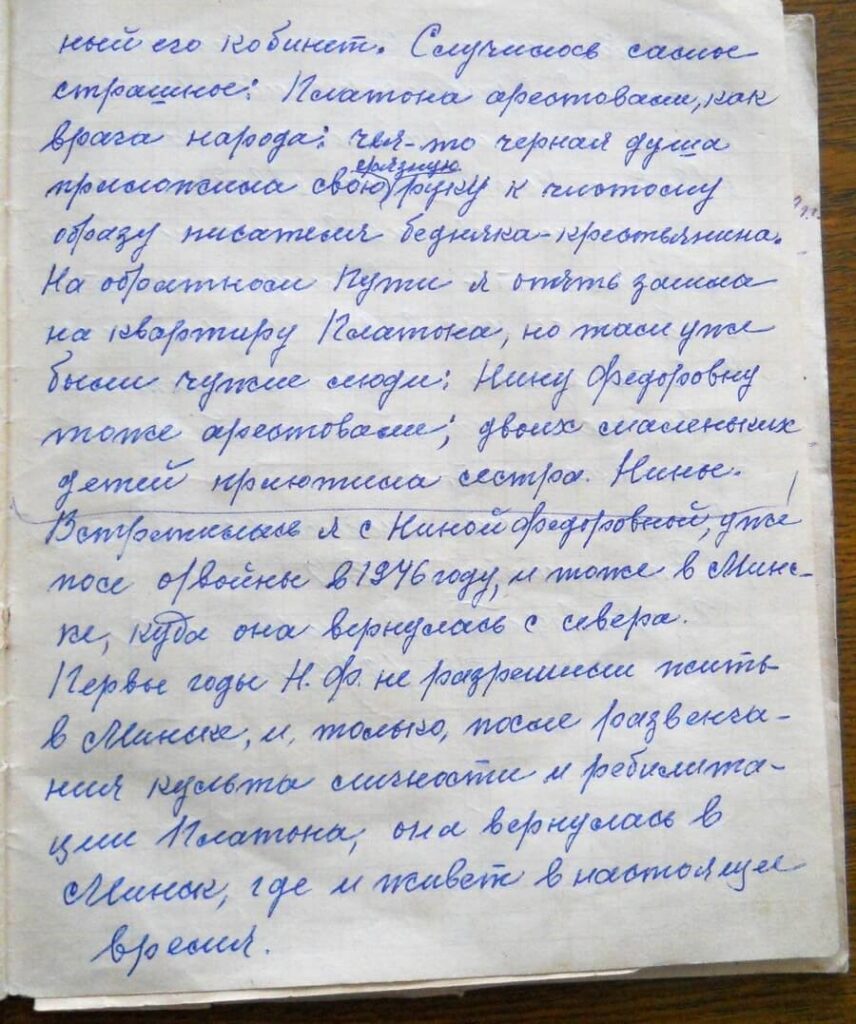 ный его кабинет. Случилось самое
страшное: Платона арестовали, как
врага народа: чья-то черная душа
грязную
приложила свою руку к чистому
образу писателя бедняка-крестьянина.
На обратном пути я опять зашла
на квартиру Платона, но там уже
были чужие люди: Нину Федоровну
тоже арестовали; двоих маленьких
детей приютила сестра Нины.
Встретилась я с Ниной Федоровной, уже
посе войны в 1946 году, и тоже в Минс-
ке, куда она вернулась с севера.
Первые годы Н. Ф. не разрешили жить
в Минске, и, только, после развенча-
ния культа личности и ребилита-
ции Платона, она вернулась в
Минск, где и живет в настоящее
время.